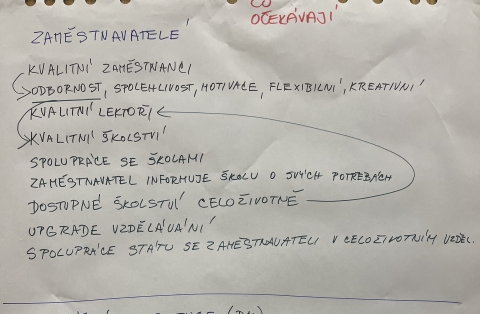 CO
OČEKÁVAJÍ
ZAMĚSTNAVATELÉ
KVALITNÍ ZAMĚSTNANCI
ODBORNOST, SPOLEHLIVOST, MOTIVACE, FLEXIBILNÍ, KREATIVNÍ
KVALITNÍ LEKTOŘI
KVALITNÍ ŠKOLSTVÍ
SPOLUPRÁCE SE ŠKOLAMI
ZAMĚSTNAVATEL INFORMUJE ŠKOLU O SVÝCH POTŘEBÁCH
DOSTUPNÉ ŠKOLSTVÍ CELOŽIVOTNĚ
UPGRADE VZDĚLÁVÁNÍ
SPOLUPRÁCE STÁTU SE ZAMĚSTNAVATELI V CELOŽIVOTNÍM VZDĚL.